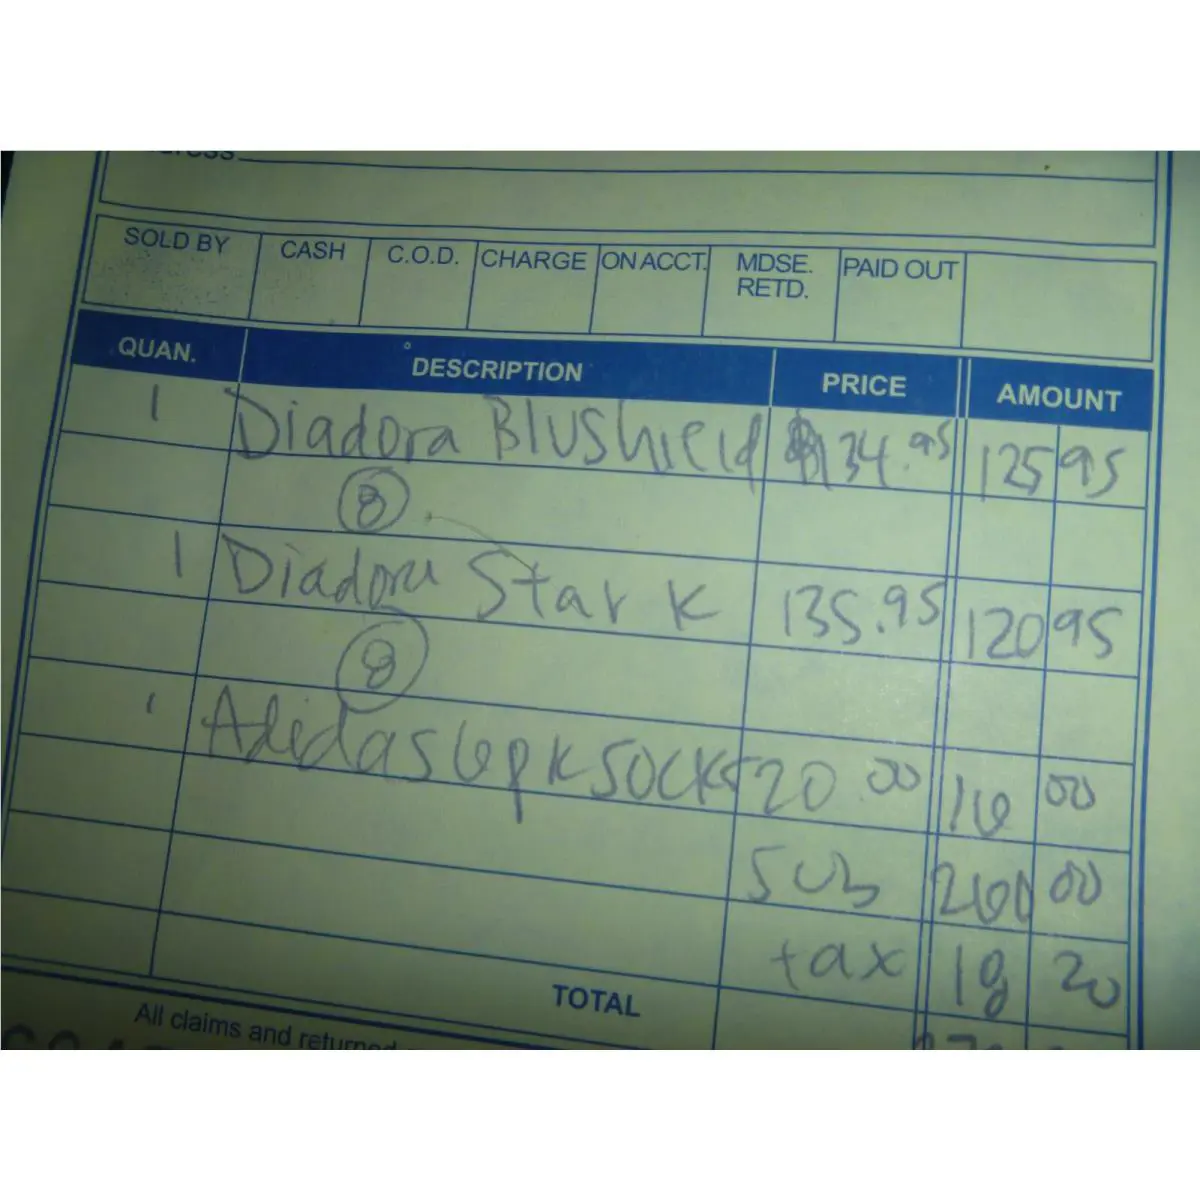 SOLD BY CASH C.O.D. CHARGE ON ACCT. MDSE. RETD. PAID OUT
QUAN. DESCRIPTION PRICE AMOUNT
1 Diadora Blushield $134.95 125 95
8
1 Diadora Star K 135.95 120 95
8
1 Adidas 6pk Socks 20.00 16 00
Sub 260 00
tax 18 20
TOTAL
All claims and returned